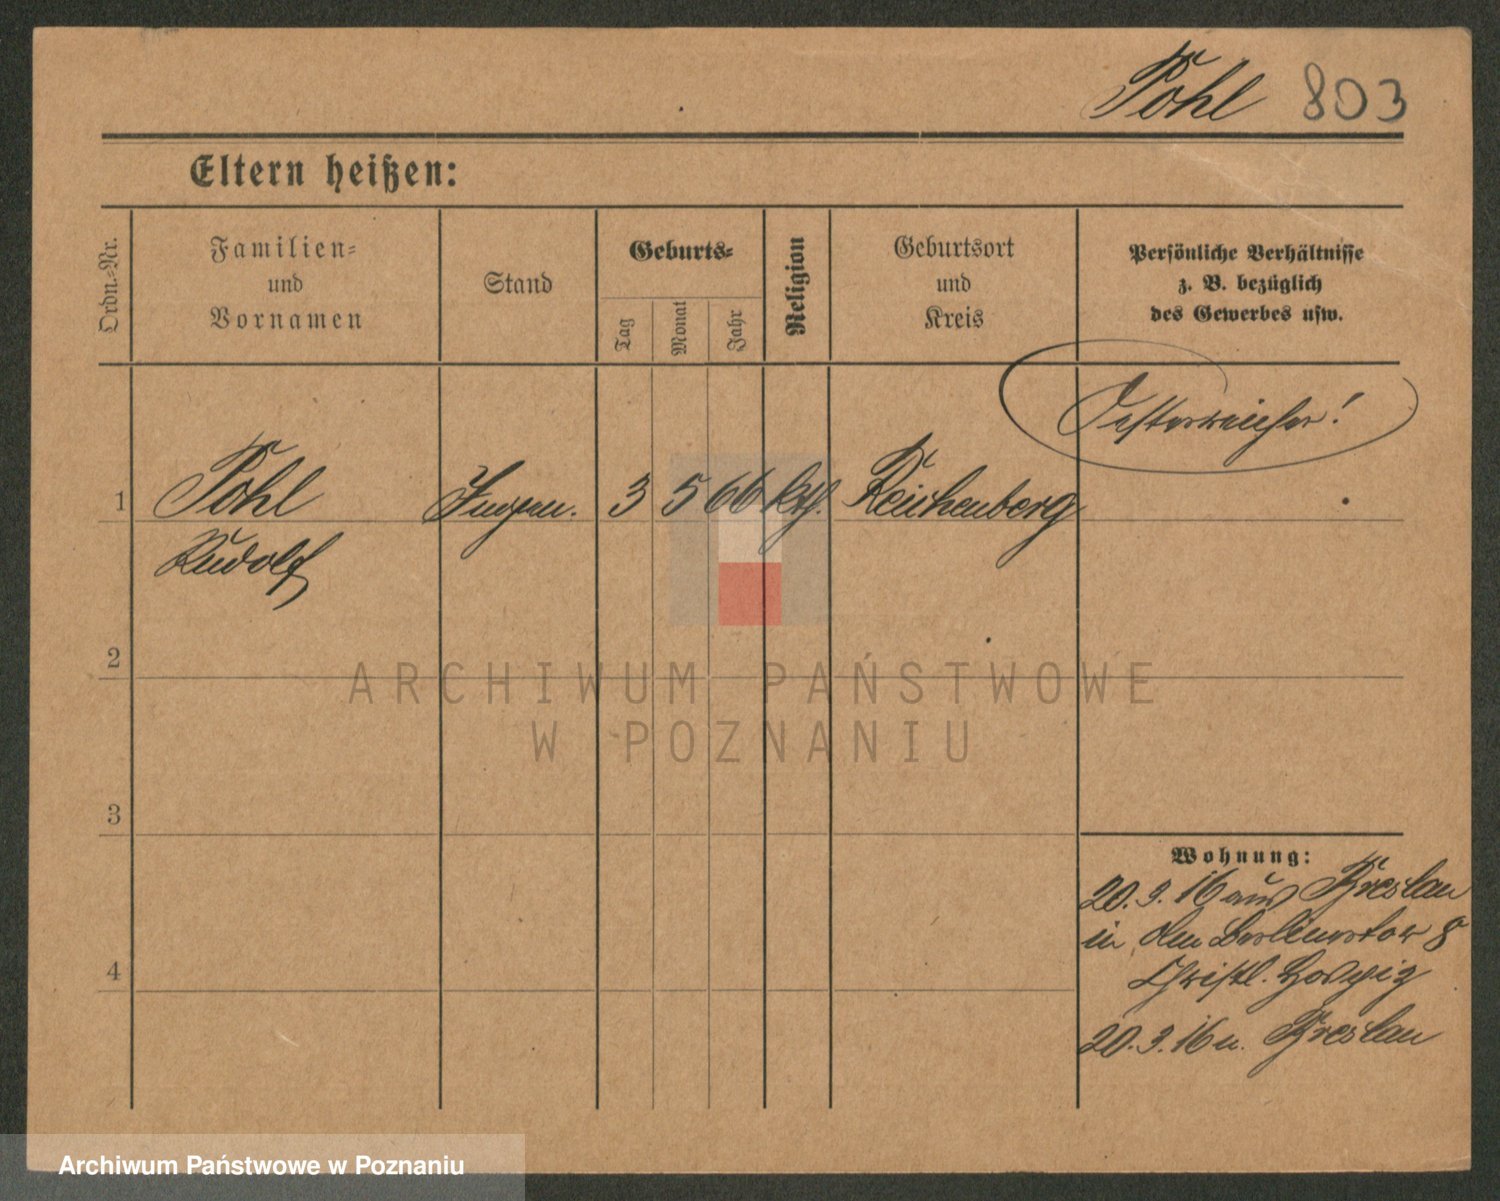 Pohl 803
Eltern heißen:
Ordn.-Nr.
Familien-
und
Vornamen
Stand
Geburts-
Tag
Monat
Jahr
Religion
Geburtsort
und
Kreis
Persönliche Verhältnisse
z. B. bezüglich
des Gewerbes usw.
Oesterreicher!
1 Pohl 3 5 66 kth. Reichenberg
Rudolf
2
3
4
Wohnung:
20. 3. 16 aus Breslau
in Am Berlinertor 8
Christl. Hospiz
20. 3. 16 n. Breslau
ARCHIWUM PAŃSTWOWE
W POZNANIU
Archiwum Państwowe w Poznaniu